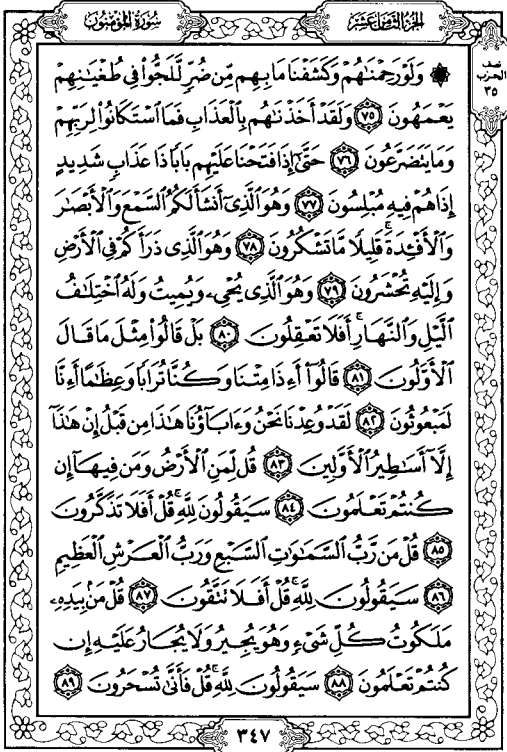 سُورَةُ المُؤْمِنُونَ
الجُزءُ الثَّامِن عَشَر
نصف
الحزب
٣٥
۞ وَلَوْ رَحِمْنَٰهُمْ وَكَشَفْنَا مَا بِهِم مِّن ضُرٍّ لَّلَجُّوا۟ فِى طُغْيَٰنِهِمْ
يَعْمَهُونَ ٧٥ وَلَقَدْ أَخَذْنَٰهُم بِٱلْعَذَابِ فَمَا ٱسْتَكَانُوا۟ لِرَبِّهِمْ
وَمَا يَتَضَرَّعُونَ ٧٦ حَتَّىٰٓ إِذَا فَتَحْنَا عَلَيْهِم بَابًا ذَا عَذَابٍ شَدِيدٍ
إِذَا هُمْ فِيهِ مُبْلِسُونَ ٧٧ وَهُوَ ٱلَّذِىٓ أَنشَأَ لَكُمُ ٱلسَّمْعَ وَٱلْأَبْصَٰرَ
وَٱلْأَفْـِٔدَةَ ۚ قَلِيلًا مَّا تَشْكُرُونَ ٧٨ وَهُوَ ٱلَّذِى ذَرَأَكُمْ فِى ٱلْأَرْضِ
وَإِلَيْهِ تُحْشَرُونَ ٧٩ وَهُوَ ٱلَّذِى يُحْىِۦ وَيُمِيتُ وَلَهُ ٱخْتِلَٰفُ
ٱلَّيْلِ وَٱلنَّهَارِ ۚ أَفَلَا تَعْقِلُونَ ٨٠ بَلْ قَالُوا۟ مِثْلَ مَا قَالَ
ٱلْأَوَّلُونَ ٨١ قَالُوٓا۟ أَءِذَا مِتْنَا وَكُنَّا تُرَابًا وَعِظَٰمًا أَءِنَّا
لَمَبْعُوثُونَ ٨٢ لَقَدْ وُعِدْنَا نَحْنُ وَءَابَآؤُنَا هَٰذَا مِن قَبْلُ إِنْ هَٰذَآ
إِلَّآ أَسَٰطِيرُ ٱلْأَوَّلِينَ ٨٣ قُل لِّمَنِ ٱلْأَرْضُ وَمَن فِيهَآ إِن
كُنتُمْ تَعْلَمُونَ ٨٤ سَيَقُولُونَ لِلَّهِ ۚ قُلْ أَفَلَا تَذَكَّرُونَ
٨٥ قُلْ مَن رَّبُّ ٱلسَّمَٰوَٰتِ ٱلسَّبْعِ وَرَبُّ ٱلْعَرْشِ ٱلْعَظِيمِ
٨٦ سَيَقُولُونَ لِلَّهِ ۚ قُلْ أَفَلَا تَتَّقُونَ ٨٧ قُلْ مَنۢ بِيَدِهِۦ
مَلَكُوتُ كُلِّ شَىْءٍ وَهُوَ يُجِيرُ وَلَا يُجَارُ عَلَيْهِ إِن
كُنتُمْ تَعْلَمُونَ ٨٨ سَيَقُولُونَ لِلَّهِ ۚ قُلْ فَأَنَّىٰ تُسْحَرُونَ ٨٩
٣٤٧